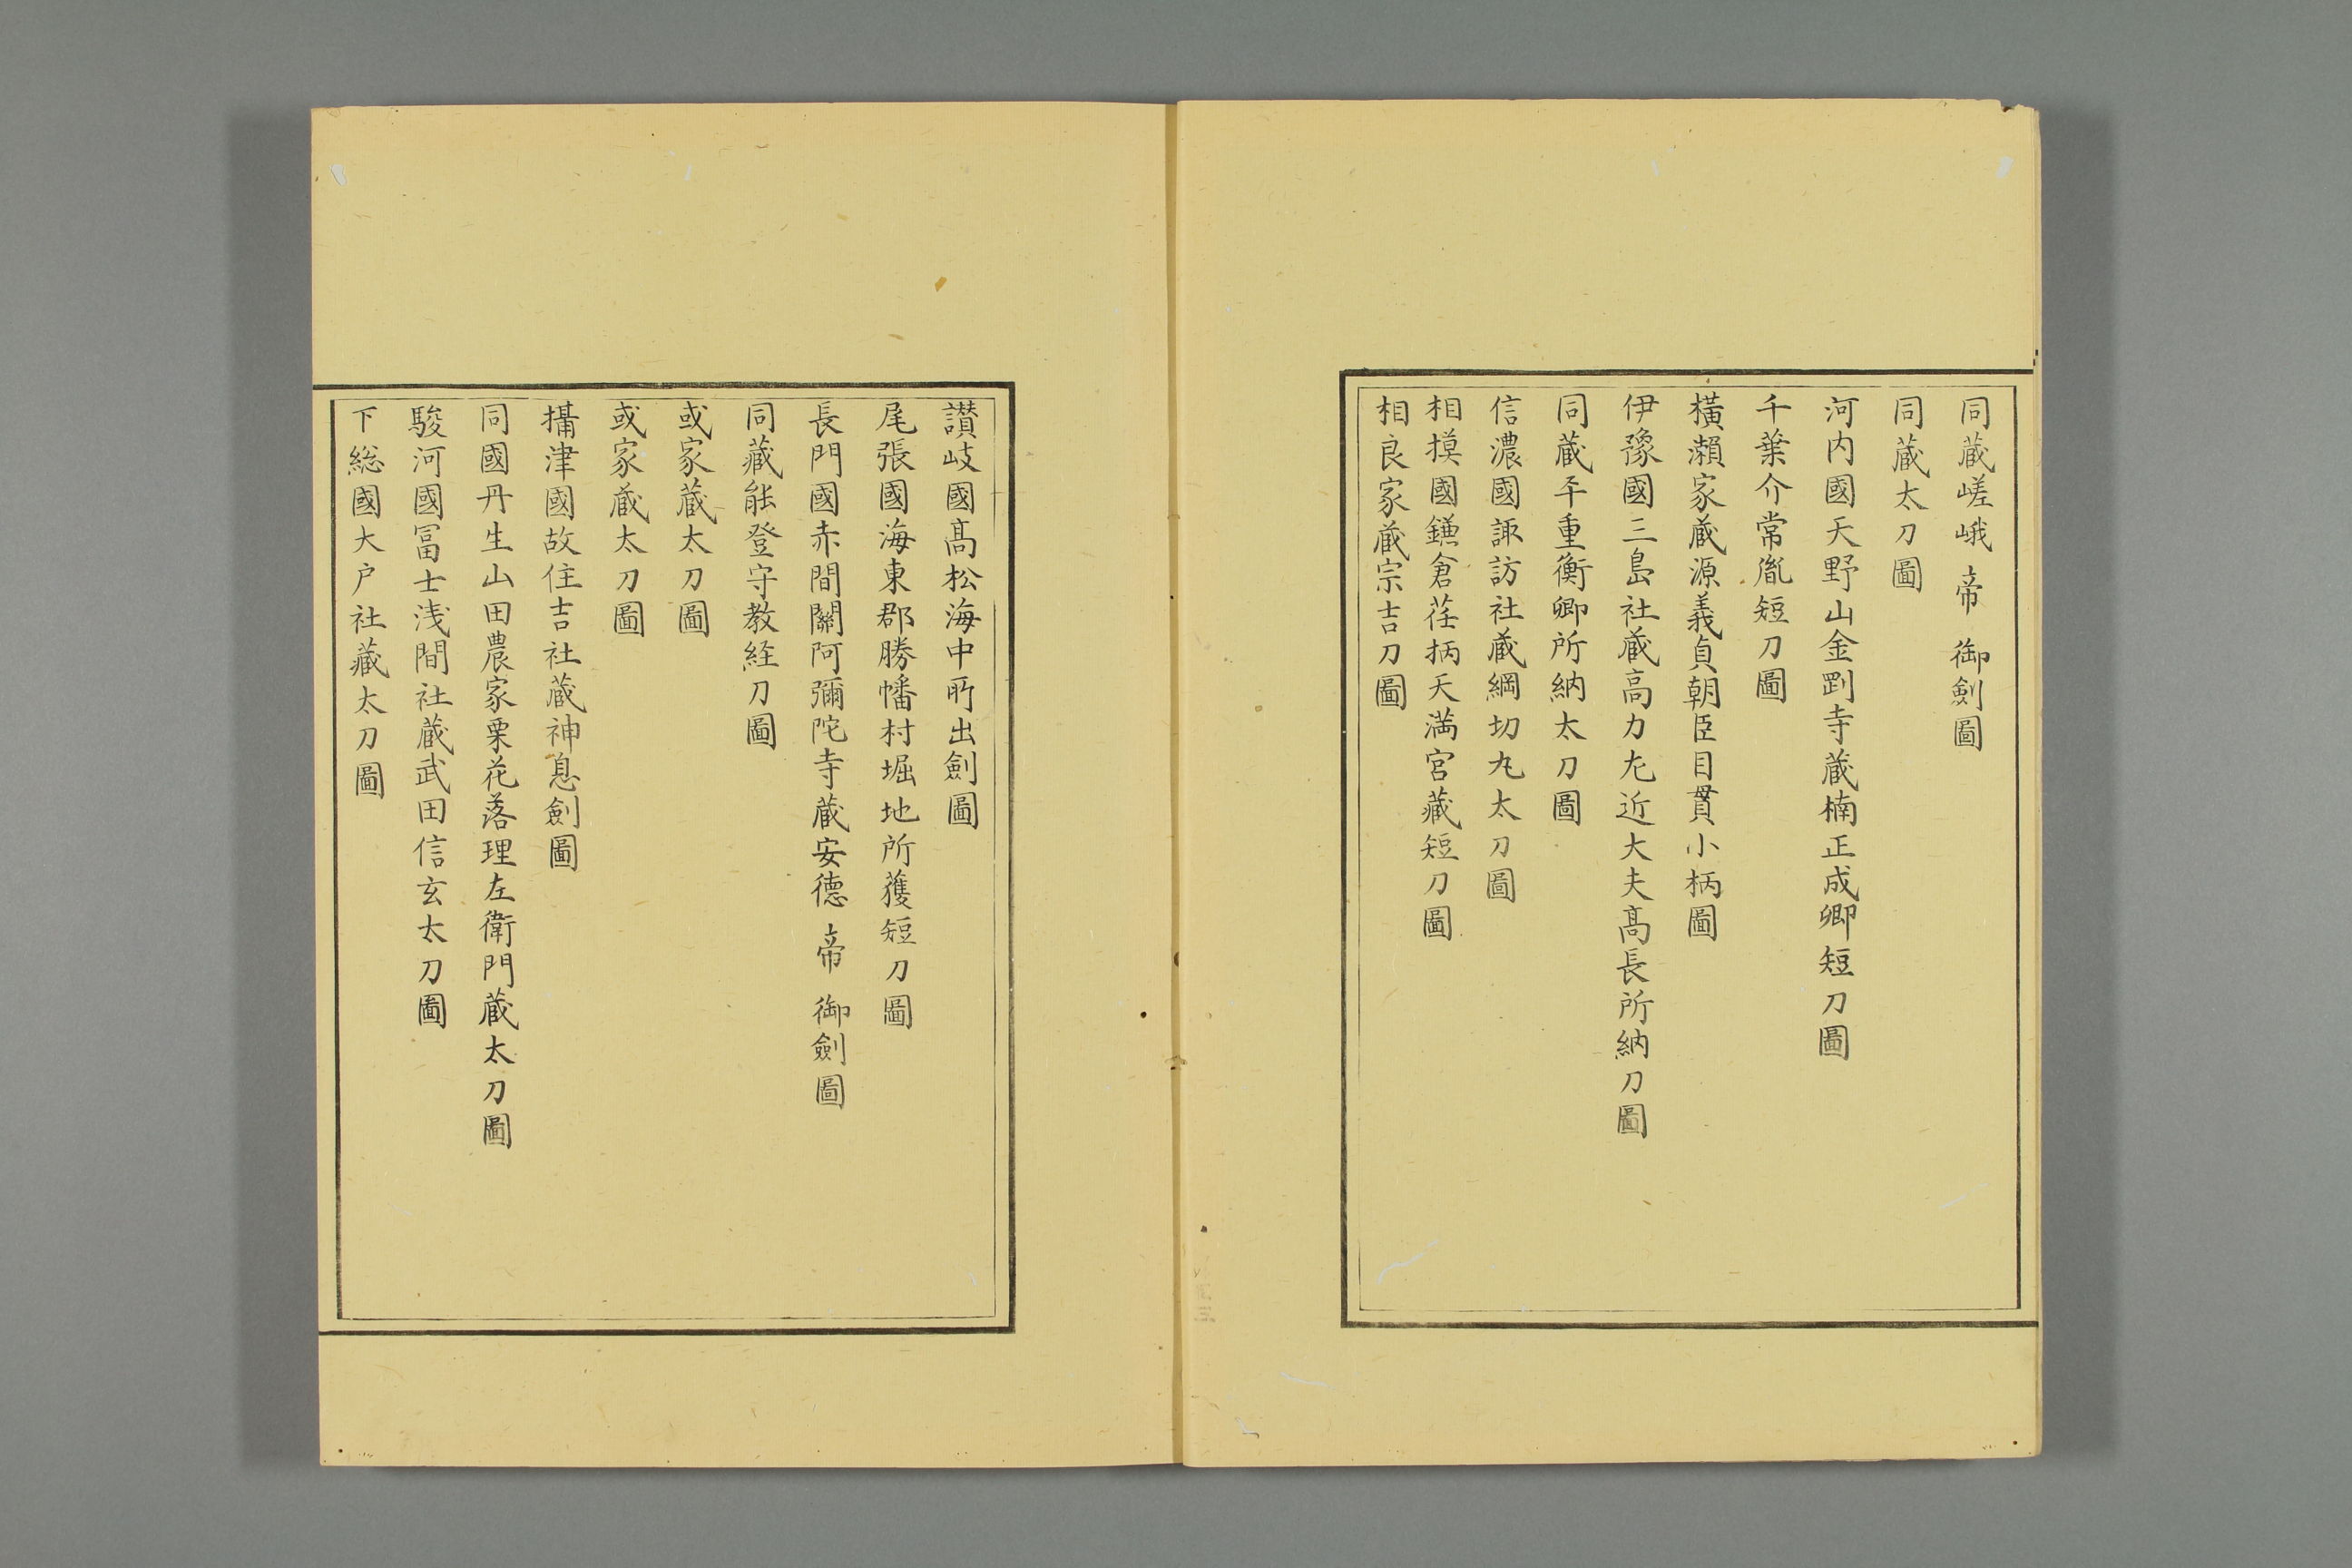 同蔵嵯峨 帝 御劍圖
同蔵太刀圖
河内國天野山金剛寺蔵楠正成卿短刀圖
千葉介常胤短刀圖
橫瀬家蔵源義貞朝臣目貫小柄圖
伊豫國三島社蔵高力左近大夫髙長所納刀圖
同蔵平重衡卿所納太刀圖
信濃國諏訪社蔵綱切丸太刀圖
相摸國鎌倉荏柄天満宮藏短刀圖
相良家蔵宗吉刀圖
讃岐國髙松海中所出劍圖
尾張國海東郡勝幡村堀地所獲短刀圖
長門國赤間關阿彌陀寺蔵安德 帝 御劍圖
同藏能登守教経刀圖
或家蔵太刀圖
或家蔵太刀圖
攝津國故住吉社蔵神息劍圖
同國丹生山田農家栗花落理左衛門蔵太刀圖
駿河國冨士浅間社蔵武田信玄太刀圖
下総國大戸社藏太刀圖